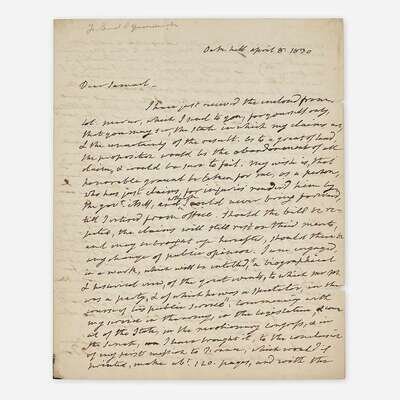 Oak hill april 8. 1830
Dear Samuel,
I have just received the inclosed from
which I send to you, for yourself only,
that you may see, the state in which my claims are
& the uncertainty of the result. As to a grant of land
the proposition would be the abandonment of all
claim, & would be sure to fail. My wish is, that
honorable ground be taken for me, as a person,
who has just claims, for injuries rendered him by
the gov't. itself, and which would never bring forward
till I retired from office. Should the bill be re-
jected, the claims will still rest on their merits,
and may be brought up hereafter, should there be
any change of public opinion. I am engaged
in a work, which will be entitled, "a biographical
& historical view, of the great events, to which mr M.
was a party, & of which he was a spectator, in the
course of his public service", commencing with
my service in the army, in the legislature & coun
cil of the State, in the revolutionary congress, & in
the Senate, I have brought it, to the conclusion
of my first mission to France, which would if
printed, make abt. 120. pages, and with the